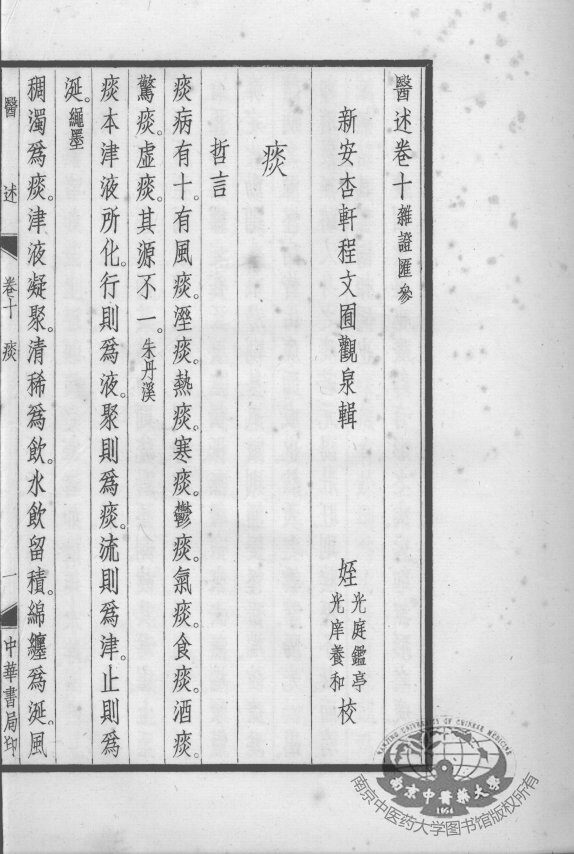 醫述卷十雜證匯參
新安杏軒程文囿觀泉輯 姪光庭鑑亭光庠養和校
痰
哲言
痰病有十。有風痰。溼痰。熱痰。寒痰。鬱痰。氣痰。食痰。酒痰。
驚痰。虛痰。其源不一。朱丹溪
痰本津液所化。行則爲液。聚則爲痰。流則爲津。止則爲
涎。繩墨
稠濁爲痰。津液凝聚。清稀爲飲。水飲留積。綿纏爲涎。風
醫述 卷十 痰 一 中華書局印
NANJING UNIVERSITY OF CHINESE MEDICINE
南京中醫藥大學
1954
南京中医药大学图书馆版权所有